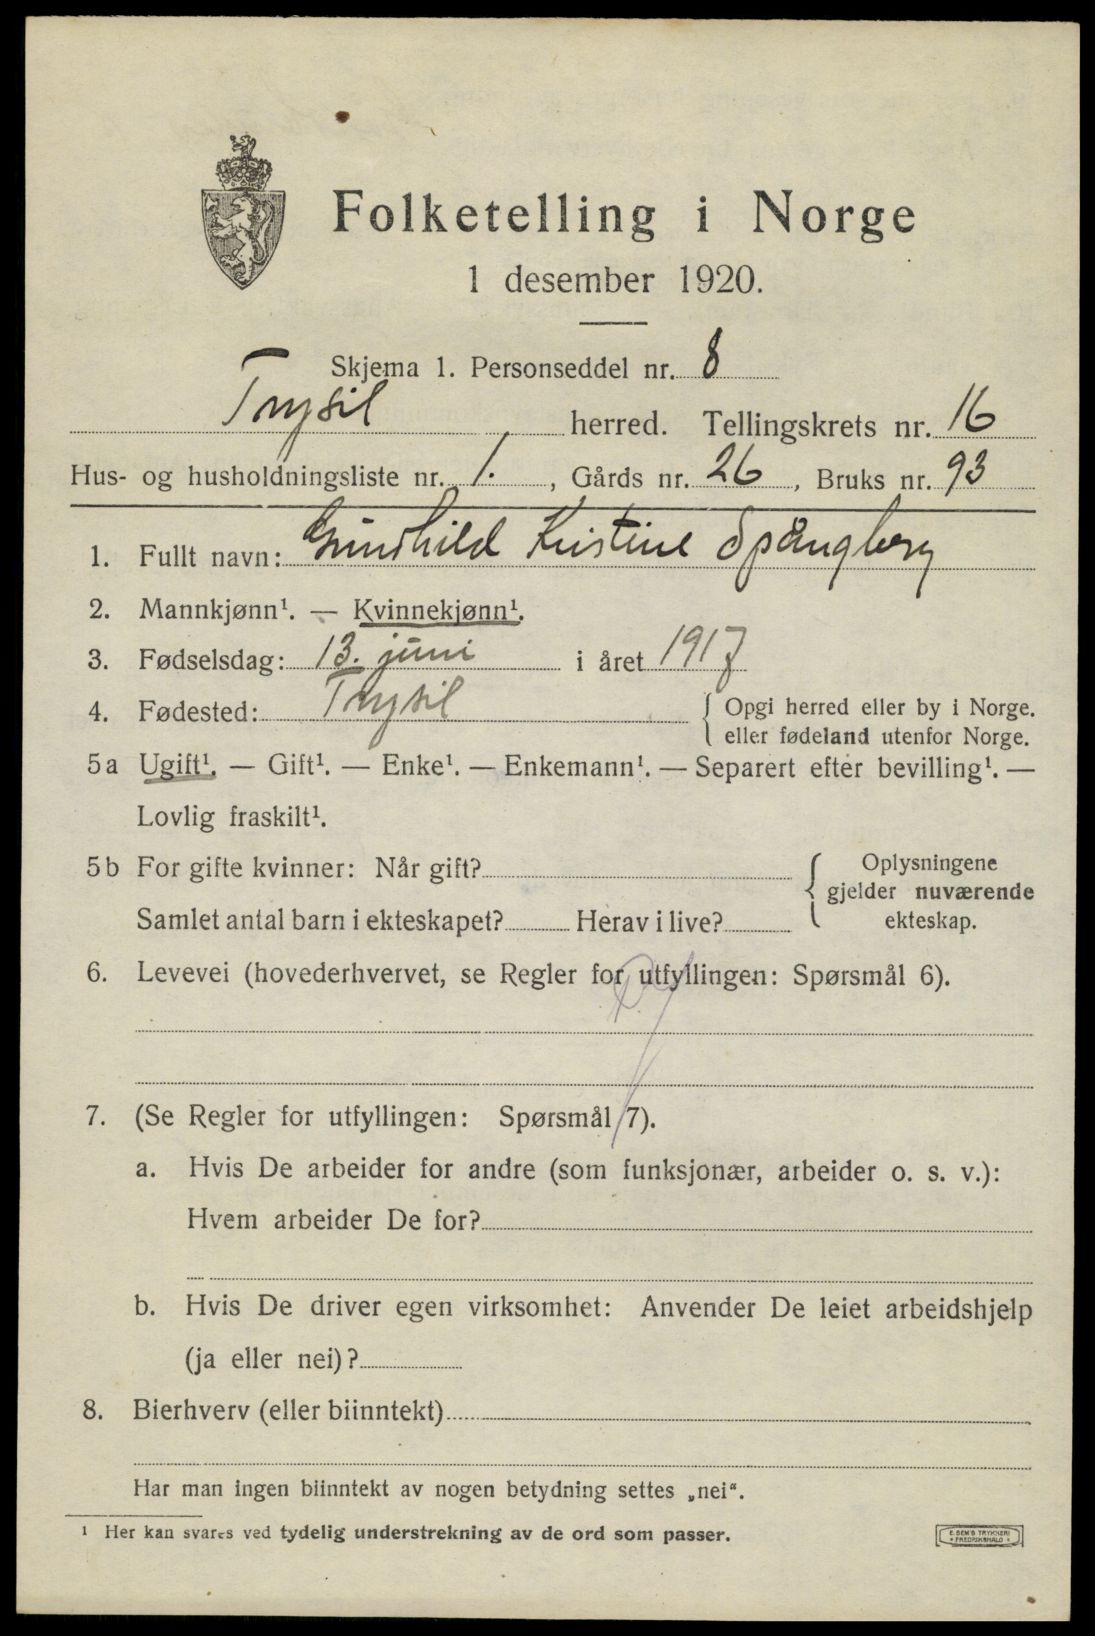 Folketelling i Norge
1 desember 1920.
Skjema 1. Personseddel nr. 8
Trysil herred. Tellingskrets nr. 16
Hus- og husholdningsliste nr. 1. , Gårds nr. 26 , Bruks nr. 93
1. Fullt navn: Gundhild Kristine Spångberg
2. Mannkjønn¹. — Kvinnekjønn¹.
3. Fødselsdag: 13. juni i året 1917
4. Fødested: Trysil { Opgi herred eller by i Norge.
eller fødeland utenfor Norge.
5a Ugift¹. — Gift¹. — Enke¹. — Enkemann¹. — Separert efter bevilling¹. —
Lovlig fraskilt¹.
5b For gifte kvinner: Når gift? { Oplysningene
gjelder nuværende
Samlet antal barn i ekteskapet? Herav i live? ekteskap.
6. Levevei (hovederhvervet, se Regler for utfyllingen: Spørsmål 6).
7. (Se Regler for utfyllingen: Spørsmål 7).
a. Hvis De arbeider for andre (som funksjonær, arbeider o. s. v.):
Hvem arbeider De for?
b. Hvis De driver egen virksomhet: Anvender De leiet arbeidshjelp
(ja eller nei)?
8. Bierhverv (eller biinntekt)
Har man ingen biinntekt av nogen betydning settes „nei“.
¹ Her kan svares ved tydelig understrekning av de ord som passer.
E. SEM'S TRYKKERI
FREDRIKSHALD